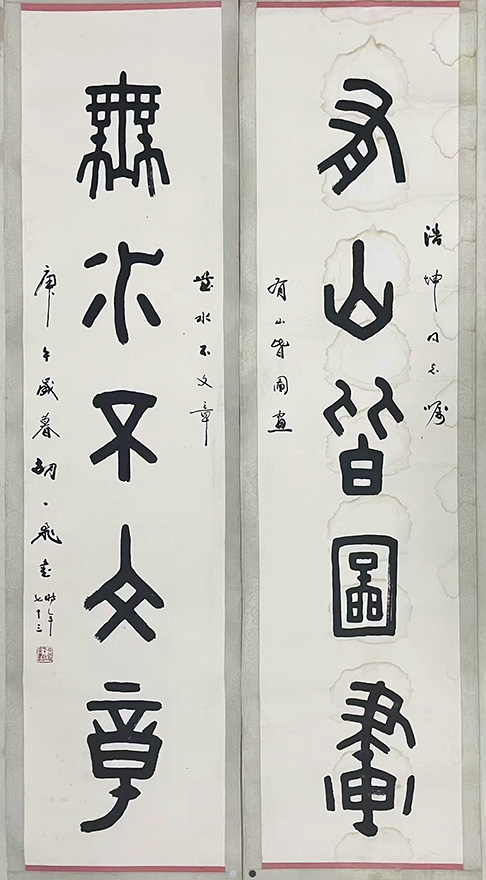 浩坤同志嘱
有山皆圖畫
有山皆圖畫
無水不文章
無水不文章
庚午歲暮胡一飛書時年
七十三